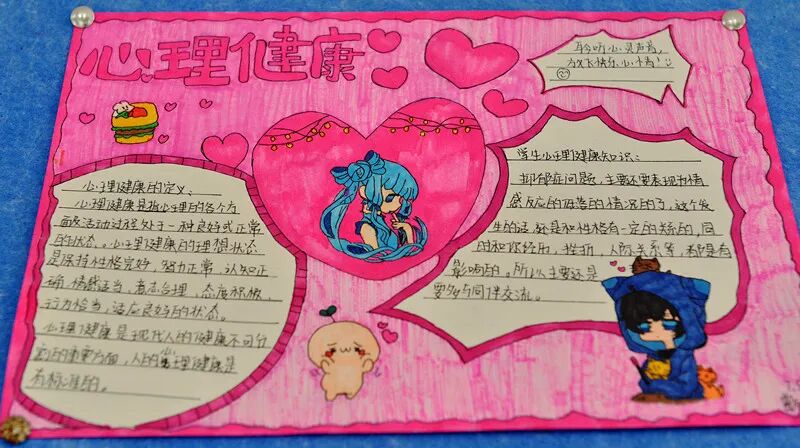 心理健康
聆听心灵声音,
放飞快乐心情!
心理健康的定义:
心理健康是指心理的各个方
面及活动过程处于一种良好或正常
的状态。心理健康的理想状态
是保持性格完好,智力正常,认知正
确,情感适当,意志合理,态度积极,
行为恰当,适应良好的状态。
心理健康是现代人的健康不可分
割的重要方面,人的生理健康是
有标准的。
学生心理健康知识:
抑郁症问题,主要还要表现为情
感反应的
的情况的了,这个发
生的话,还是和性格有一定的关系的,同
的和你经历,挫折,人际关系等,都是有
影响的。所以主要还是
要多与同伴交流。